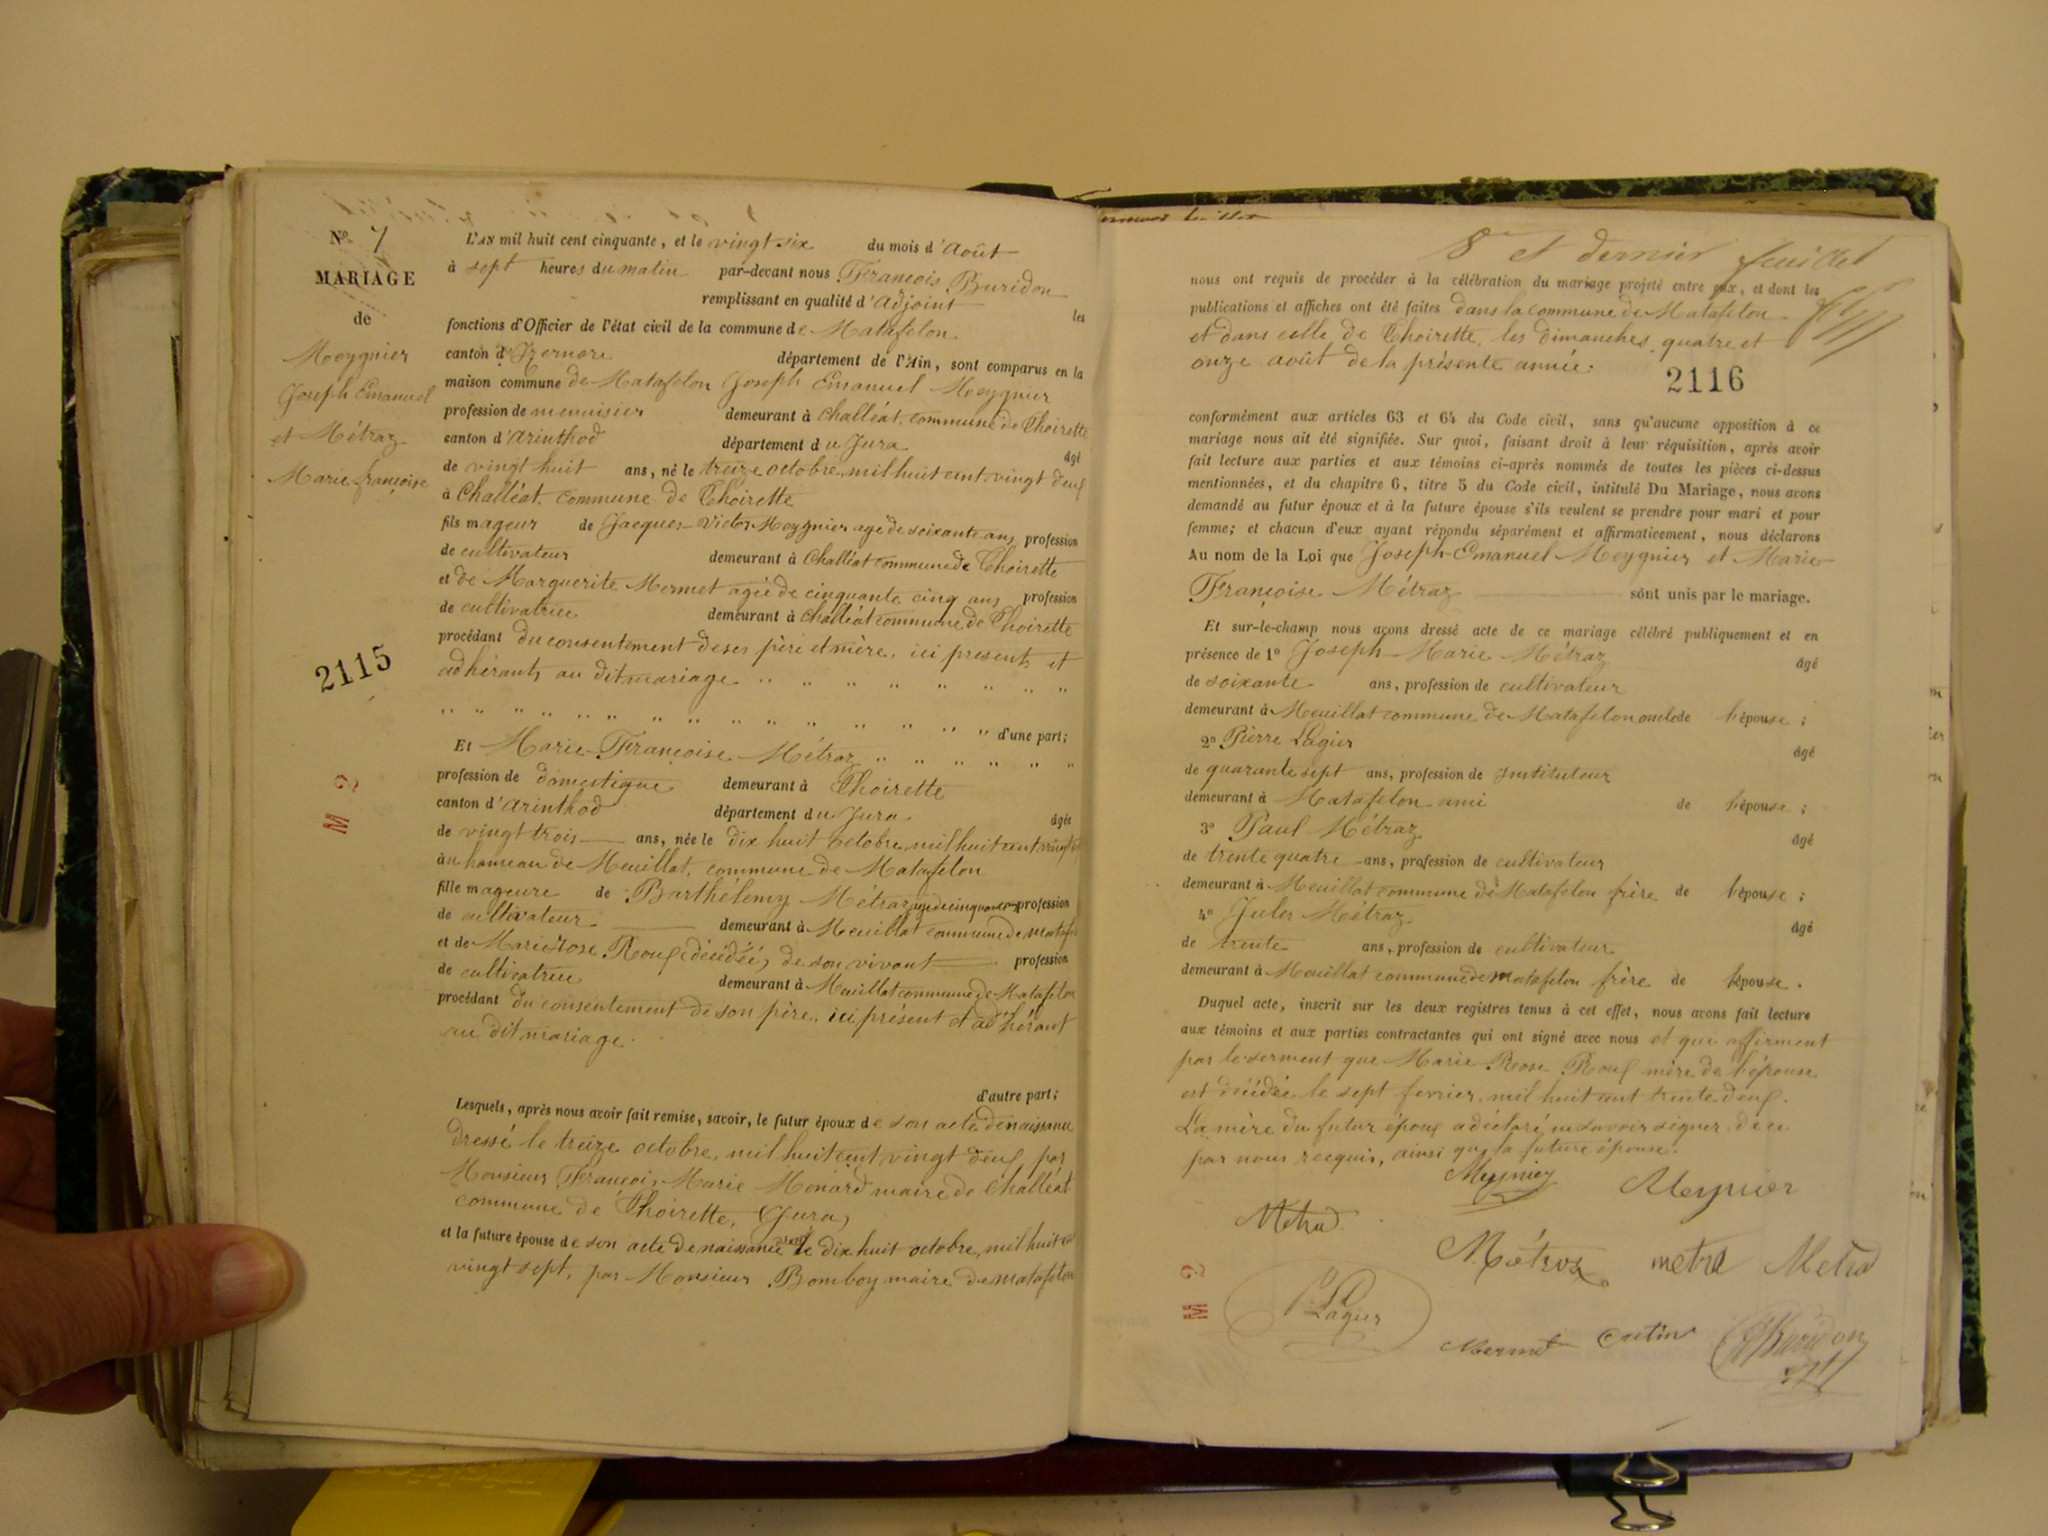 Nº 7
MARIAGE
de
Meygnier
Joseph Emanuel
et Métraz
Marie françoise
2115
M 2
L'AN mil huit cent cinquante, et le vingt six du mois d'Août
à sept heures du matin par-devant nous François Buridon
remplissant en qualité d'Adjoint les
fonctions d'Officier de l'état civil de la commune de Matafelon
canton d'Izernore département de l'Ain, sont comparus en la
maison commune de Matafelon Joseph Emanuel Meygnier
profession de menuisier demeurant à Challéat, commune de Thoirette
canton d'arinthod département du Jura âgé
de vingt huit ans, né le treize octobre, mil huit cent vingt deux
à Challéat, commune de Thoirette
fils mageur de Jacques-Victor Meygnier agé de soixante ans profession
de cultivateur demeurant à Challéat commune de Thoirette
et de Marguerite Mermet agée de cinquante cinq ans profession
de cultivatrice demeurant à challéat commune de Thoirette
procédant du consentement de ses père et mère, ici presents et
adhérants au dit mariage " " " " " " " "
" " " " " " " " " " " " " " d'une part;
Et Marie-Françoise Métraz " " " " " "
profession de domestique demeurant à Thoirette
canton d'arinthod département du Jura âgée
de vingt trois ans, née le dix huit octobre, mil huit cent vingt
au hameau de Meuillat, commune de Matafelon
fille mageure de Barthélemy Métraz agé de cinquante profession
de cultivateur demeurant à Meuillat commune de Matafelon
et de Marie rose Roux (décédée) de son vivant profession
de cultivatrice demeurant à Meuillat commune de Matafelon
procédant du consentement de son père, ici présent et adhérant
au dit mariage.
d'autre part;
Lesquels, après nous avoir fait remise, savoir, le futur époux de son acte de naissance
dressé le treize octobre, mil huit cent vingt deux par
Monsieur François Marie Monard maire de Challéat
commune de Thoirette, (Jura)
et la future épouse de son acte de naissance le dix huit octobre, mil huit cent
vingt sept, par Monsieur Bomboy maire de Matafelon
8e et dernier feuillet
nous ont requis de procéder à la célébration du mariage projeté entre eux, et dont les
publications et affiches ont été faites dans la commune de Matafelon
et dans celle de Thoirette, les dimanches quatre et
onze août de la présente année.
2116
conformément aux articles 63 et 64 du Code civil, sans qu'aucune opposition à ce
mariage nous ait été signifiée. Sur quoi, faisant droit à leur réquisition, après avoir
fait lecture aux parties et aux témoins ci-après nommés de toutes les pièces ci-dessus
mentionnées, et du chapitre 6, titre 5 du Code civil, intitulé Du Mariage, nous avons
demandé au futur époux et à la future épouse s'ils veulent se prendre pour mari et pour
femme; et chacun d'eux ayant répondu séparément et affirmativement, nous déclarons
Au nom de la Loi que Joseph-Emanuel Meygnier et Marie
Françoise Métraz sont unis par le mariage.
Et sur-le-champ nous avons dressé acte de ce mariage célébré publiquement et en
présence de 1º Joseph-Marie Métraz âgé
de soixante ans, profession de cultivateur
demeurant à Meuillat commune de Matafelon oncle de l'épouse;
2º Pierre Lagier âgé
de quarante sept ans, profession de instituteur
demeurant à Matafelon ami de l'épouse;
3º Paul Métraz âgé
de trente quatre ans, profession de cultivateur
demeurant à Meuillat commune de Matafelon frère de l'épouse;
4º Jules Métraz âgé
de trente ans, profession de cultivateur
demeurant à Meuillat commune de Matafelon frère de l'épouse.
Duquel acte, inscrit sur les deux registres tenus à cet effet, nous avons fait lecture
aux témoins et aux parties contractantes qui ont signé avec nous et qui affirment
par le serment que Marie Rose Roux mère de l'épouse
est décédée le sept fevrier, mil huit cent trente deux.
La mère du futur époux a déclaré ne savoir signer, de ce
par nous recquis, ainsi que la future épouse.
Meynier Meynier
Metra
Métraz metra Metra
P. Lagier
Mermet Cretin Buridon
M 2